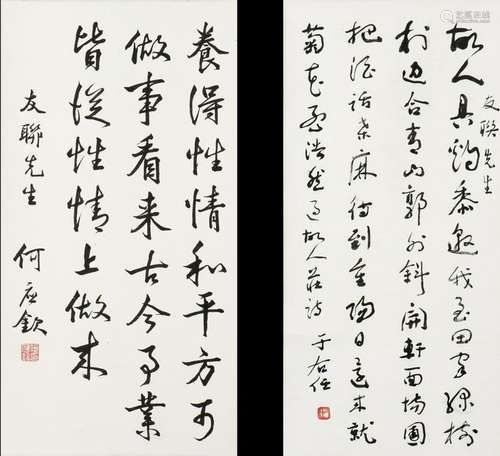 友聯先生
故人具鷄黍邀我至田家綠樹
村边合青山郭外斜開軒面場圃
把酒話桑麻待到重陽日還来就
菊花孟浩然過故人莊詩
于右任
養得性情和平方可
做事看来古今事業
皆從性情上做来
友聯先生
何應欽